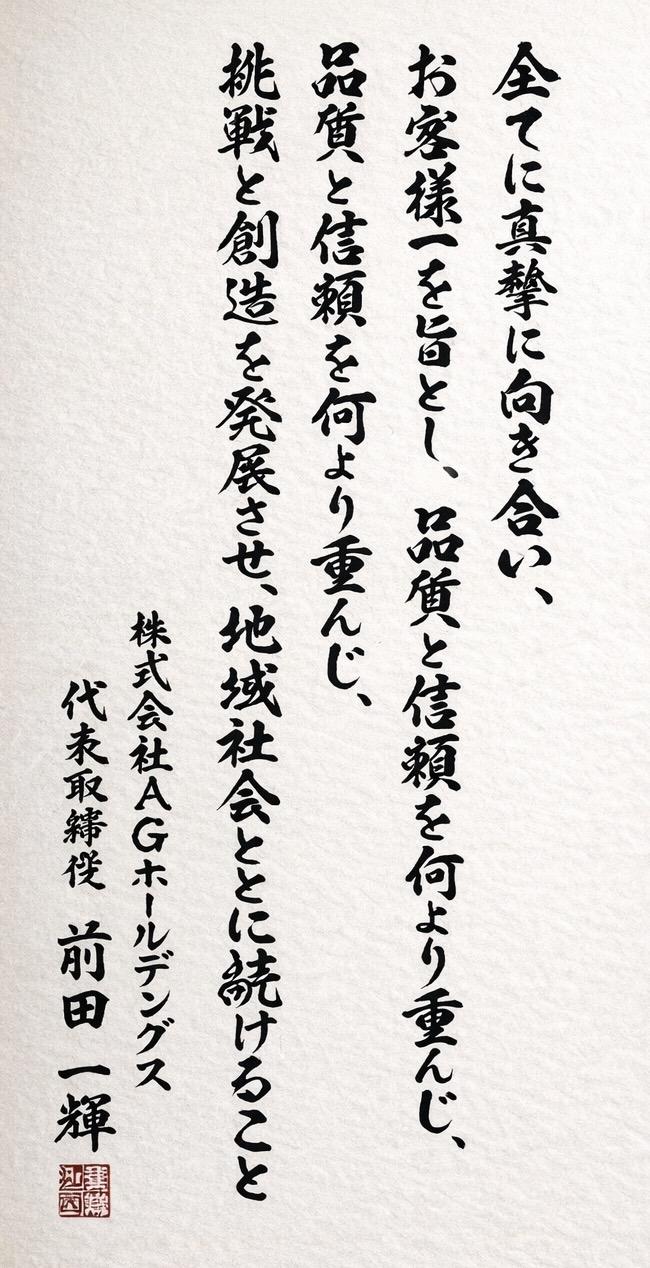 全てに真摯に向き合い、
お客様一を旨とし、品質と信頼を何より重んじ、
品質と信頼を何より重んじ、
挑戦と創造を発展させ、地域社会ととに続けること
株式会社AGホールディングス
代表取締役 前田 一輝